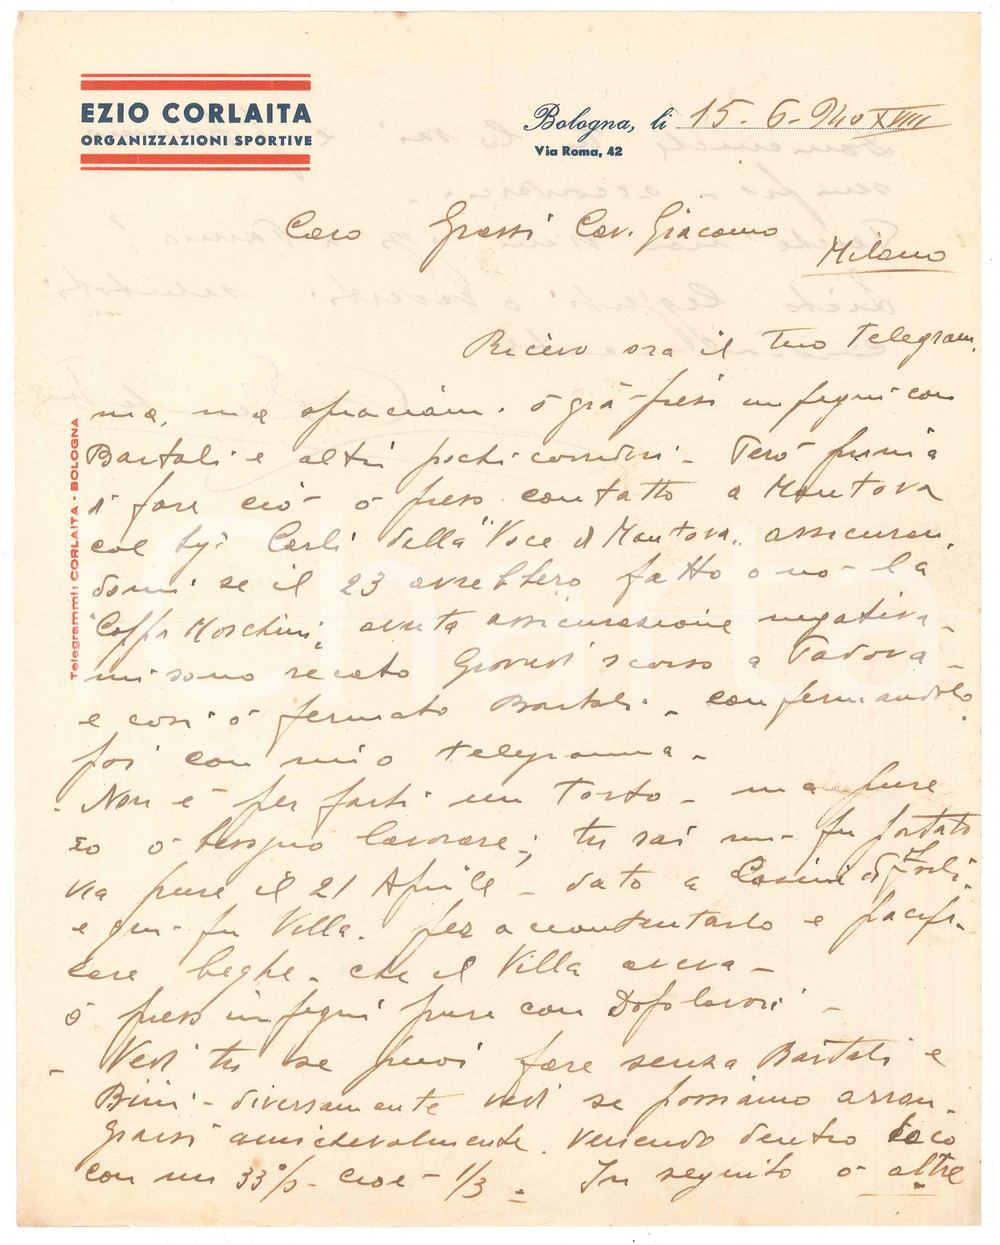 EZIO CORLAITA
ORGANIZZAZIONI SPORTIVE
Bologna, li 15-6-940 XVIII
Via Roma, 42
Caro Grassi Cav. Giacomo
Milano
Ricevo ora il tuo Telegram
ma, ma spiacium. ò già presi impegni con
Bartali e altri pochi corridori - Però prima
di fare ciò ò preso contatto a Mantova
col Sig: Carli della "Voce di Mantova" assicuran
domi se il 23 avrebbero fatto o no la
"Coppa Moschini", avuta assicurazione negativa -
mi sono recato Giovedì scorso a Padova -
e così ò fermato Bartali - confermandolo
poi con mio telegramma -
- Non è per farti un torto - ma pure
Io ò bisogno lavorare; tu sai mi fu portato
via pure il 21 Aprile - dato a Casini di Forlì
e qui fu Villa. per accontentarlo e pacifi-
care beghe - che il Villa aveva -
ò preso impegni pure con Dopolavori -
- Vedi tu se puoi fare senza Bartali e
Bini - diversamente vedi se possiamo arran-
giarsi amichevolmente. venendo dentro teco
con un 33% - cioè - 1/3 = In seguito ò altre
Telegrammi: CORLAITA - BOLOGNA
Charta